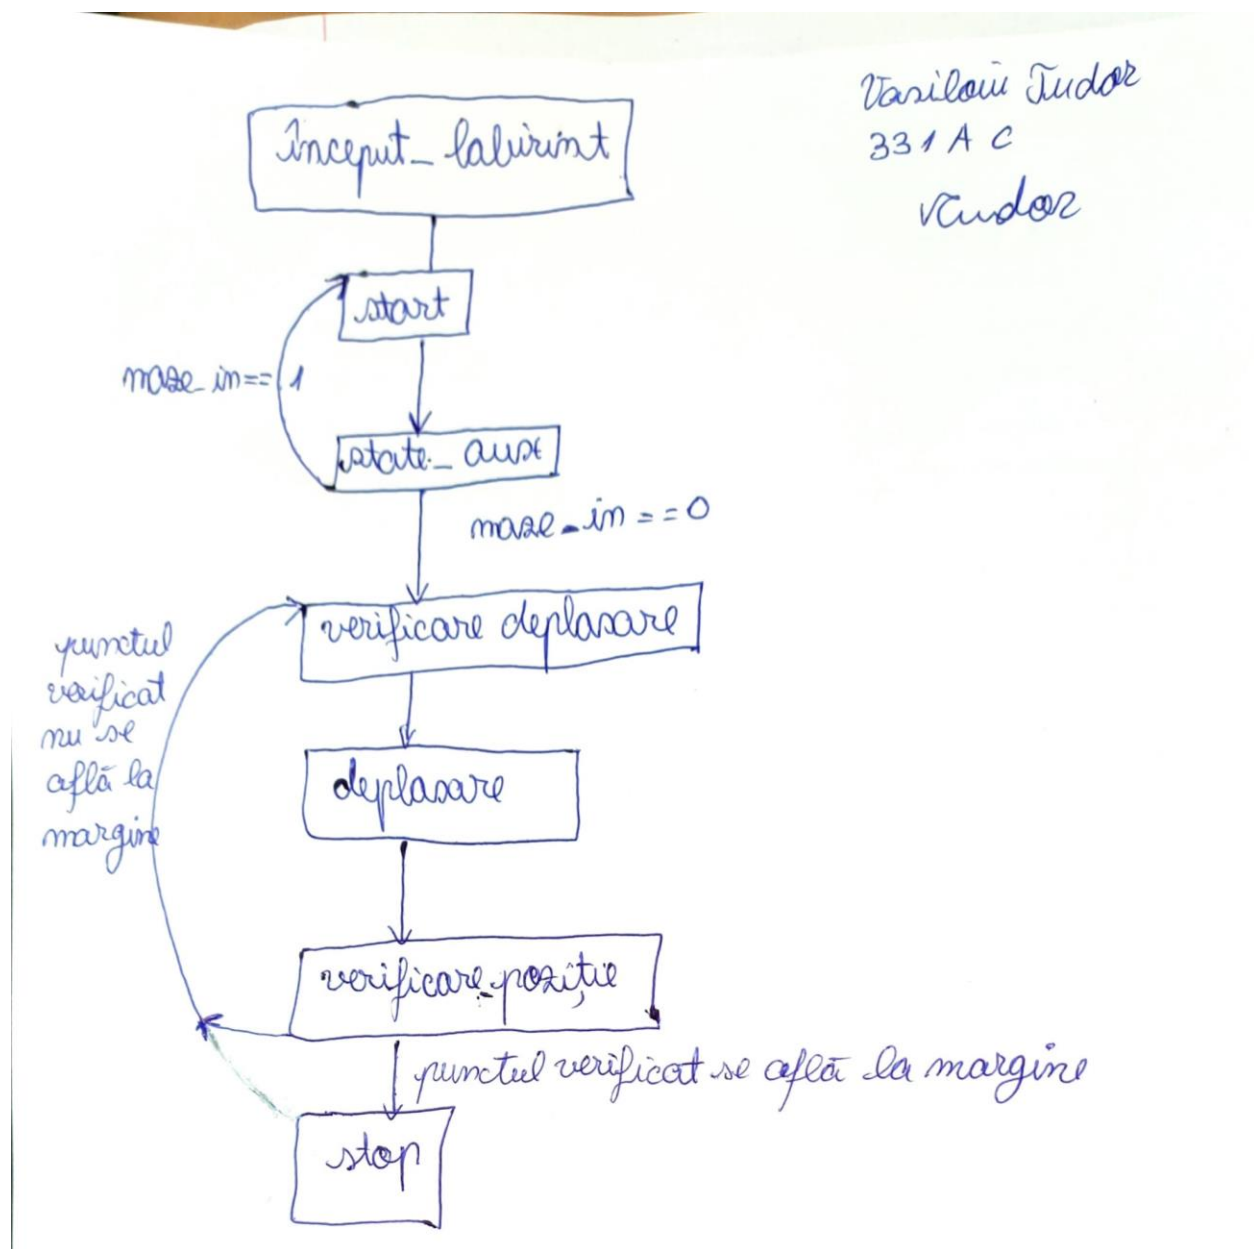 Vasiloiu Tudor
331 A C
VTudor
început_labirint
start
maze_in == 1
state_aux
maze_in == 0
verificare deplasare
punctul
verificat
nu se
află la
margine
deplasare
verificare_poziție
punctul verificat se află la margine
stop